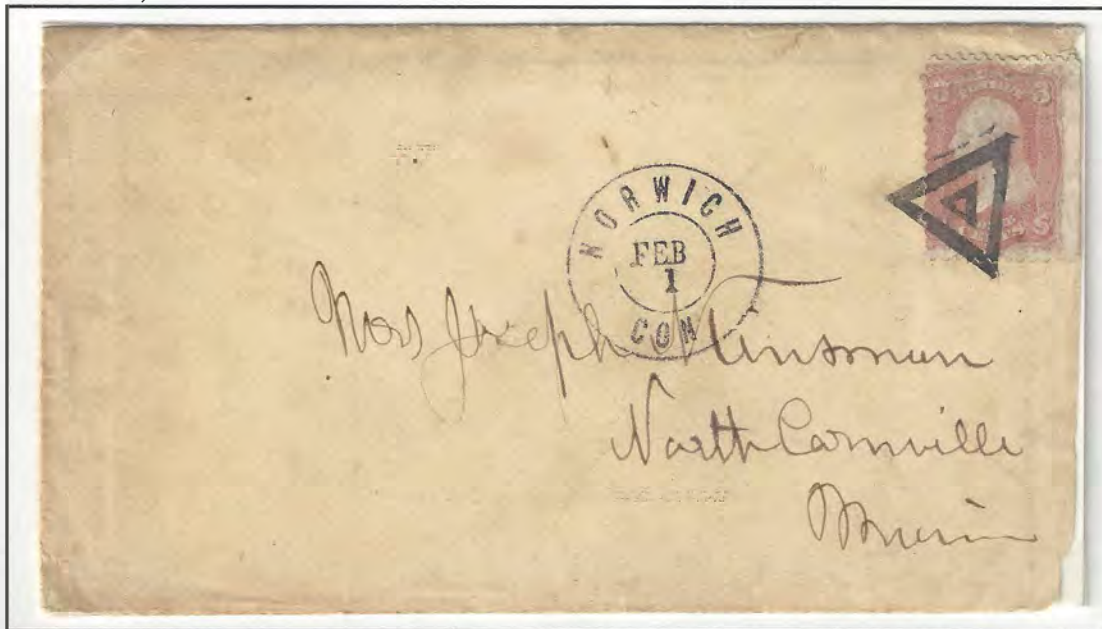 NORWICH
FEB
1
CON
Joseph Tinsman
North Cornville